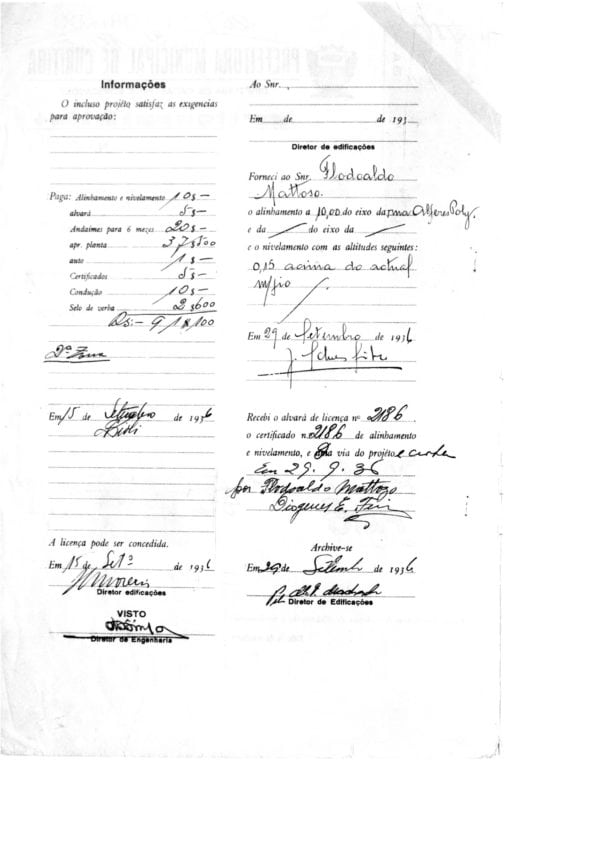 Informações
O incluso projéto satisfaz as exigencias
para aprovação:
Paga: Alinhamento e nivelamento 10$–
alvará 5$–
Andaimes para 6 mezes 20$–
apr. planta 37$500
auto 1$–
Certificados 5$–
Condução 10$–
Selo de verba 2$600
Rs:–
2ª Zona
Em 15 de Setembro de 1936
A licença pode ser concedida.
Em 15 de Setº de 1936
Diretor edificações
VISTO
Diretor de Engenharia
Ao Snr.
Em de de 193
Diretor de edificações
Forneci ao Snr. Flodoaldo
Mattoso
o alinhamento a 10,00 do eixo da rua Alferes Poly.
e da do eixo da
e o nivelamento com as altitudes seguintes:
0,15 acima do actual
m/fio
Em 29 de Setembro de 1936
Recebi o alvará de licença nº 2186
o certificado n. 2186 de alinhamento
e nivelamento, e via do projéto
Em 29. 9. 36
por Flodoaldo Mattozo
Diogenes E.
Archive-se
Em 29 de Setemb de 1936
Diretor de Edificações